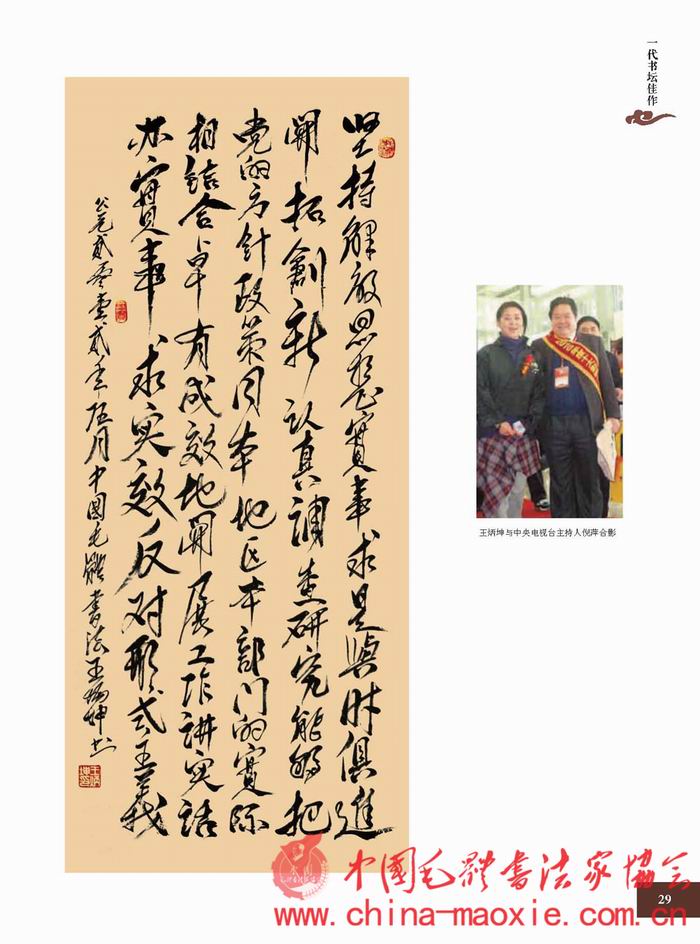 一代书坛佳作
坚持解放思想實事求是與时俱進
開拓創新认真調查研究能够把
党的方针政策同本地区本部门的實际
相结合卓有成效地開展工作讲实话
办實事求实效反对形式主義
公元贰零壹贰年伍月中國毛體書法王炳坤书
王炳坤与中央电视台主持人倪萍合影
中國毛體書法家協会
www.china-maoxie.com.cn
29